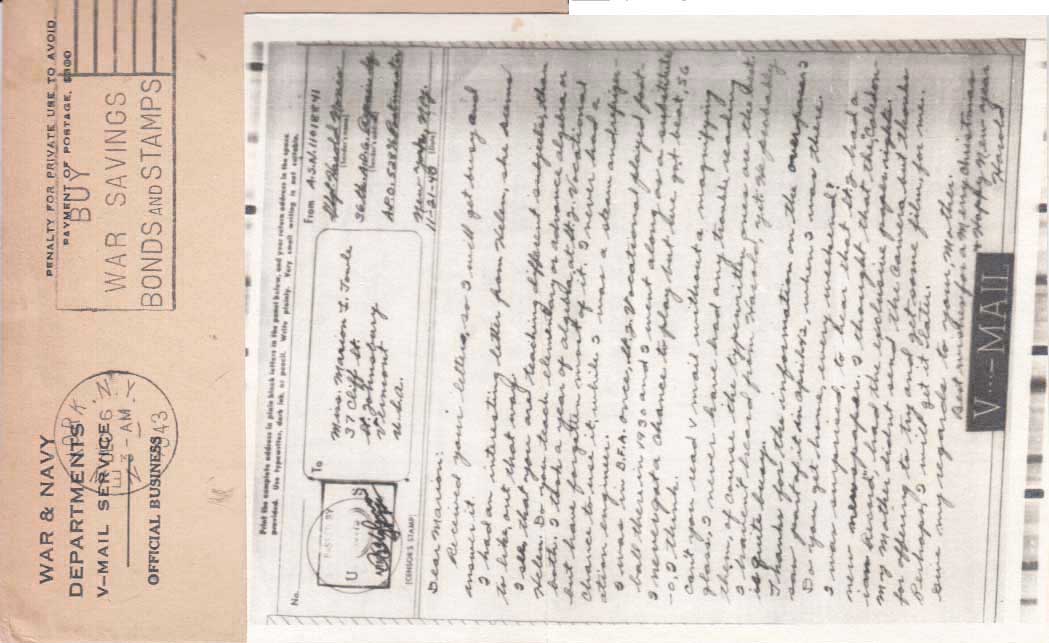 WAR & NAVY
DEPARTMENTS
V-MAIL SERVICE
OFFICIAL BUSINESS
PENALTY FOR PRIVATE USE TO AVOID
PAYMENT OF POSTAGE, $300
YORK, N.Y.
DEC 6
3 - AM
1943
BUY
WAR SAVINGS
BONDS AND STAMPS
Print the complete address in plain block letters in the panel below, and your return address in the space
provided. Use typewriter, dark ink, or pencil. Write plainly. Very small writing is not suitable.
No.
(CENSOR'S STAMP)
To
Miss. Marion L.
37 Cliff St.
St. Johnsbury
Vermont
U.S.A.
From
A.S.N. 11018941
Harold
(Sender's name)
36th
(Sender's address)
A.P.O. 528 % Postmaster
New York, N.Y.
11-21-43
(Date)
Dear Marion:
Received your letter, so I will get busy and
answer it.
I had an interesting letter from Helen, she seems
to like, out that way.
I see that you are teaching different subjects, than
Helen. Do you teach elementary or advance algebra or
both. I took a year of algebra, at St. J. Vocational
but have forgotten most of it. I never had a
chance to use it, while I was a steam and refriger-
ation engineer.
I was in B.F.A. once, St. J. Vocational played foot
ball there in 1930 and I went along, as a substitute
I never got a chance, to play but we got beat, 56
-0, I think.
Can't you read V mail without a magnifying
glass, I never have had any trouble reading
them, of course the typewritten ones are the best.
I haven't heard from Harold, yet, he probably
is quite busy.
Thanks for the information on the
saw part of it in April 42, when I was there.
Do you get home, every weekend?
I was surprised, to hear that St. J. had a
new newspaper, I thought that the "Caledon-
ian Record", had the exclusive paper rights.
My mother didn't send the
for offering to try and get some film, for me.
Perhaps, I will get it later.
Give my regards to your Mother.
Best wishes for a Merry Christmas
& Happy New Year
Harold
V···—MAIL